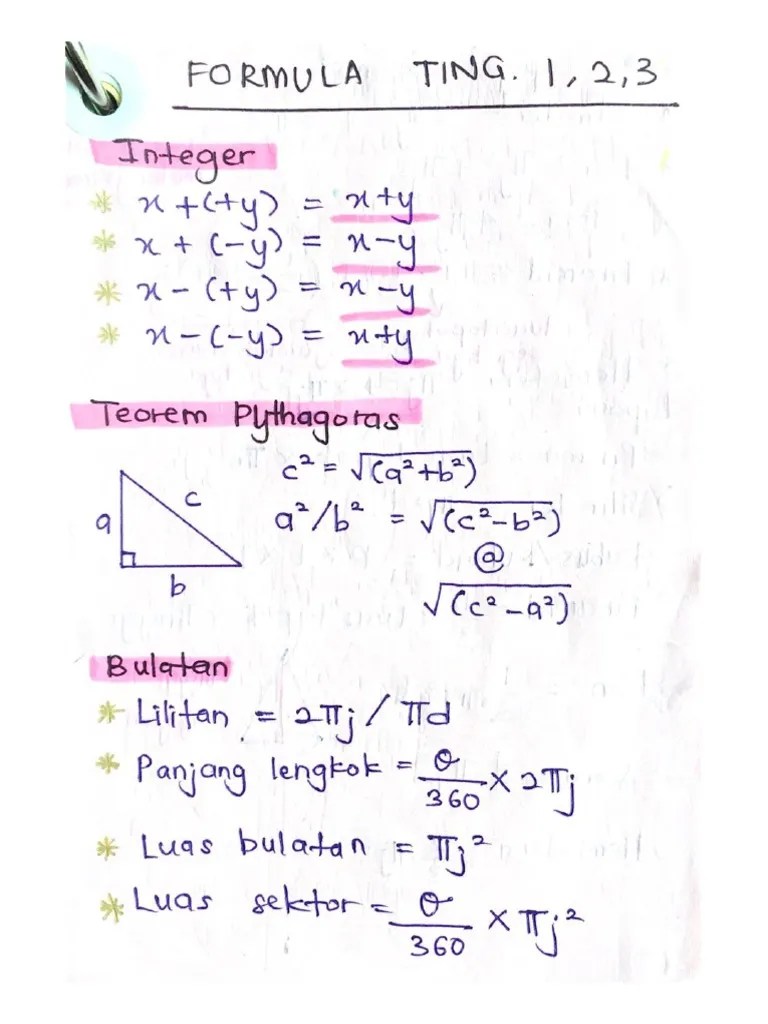 FORMULA TING. 1, 2, 3
Integer
* x + (+y) = x+y
* x + (-y) = x-y
* x - (+y) = x-y
* x - (-y) = x+y
Teorem Pythagoras
a
c
b
c² = √(a²+b²)
a²/b² = √(c²-b²)
@
√(c²-a²)
Bulatan
* Lilitan = 2πj / πd
* Panjang lengkok = θ/360 × 2πj
* Luas bulatan = πj²
* Luas sektor = θ/360 × πj²